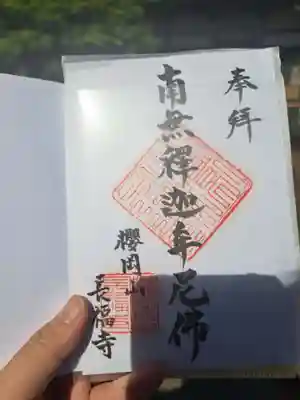 奉拜
南無釋迦牟尼佛
櫻岡山
長福寺